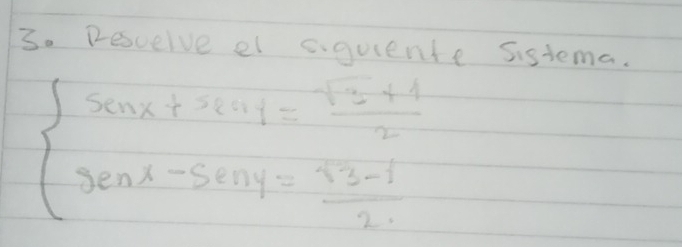 3. Resuelve el siguiente Sistema.
senx + seny = √3 + 1 / 2
senx - seny = √3 - 1 / 2.